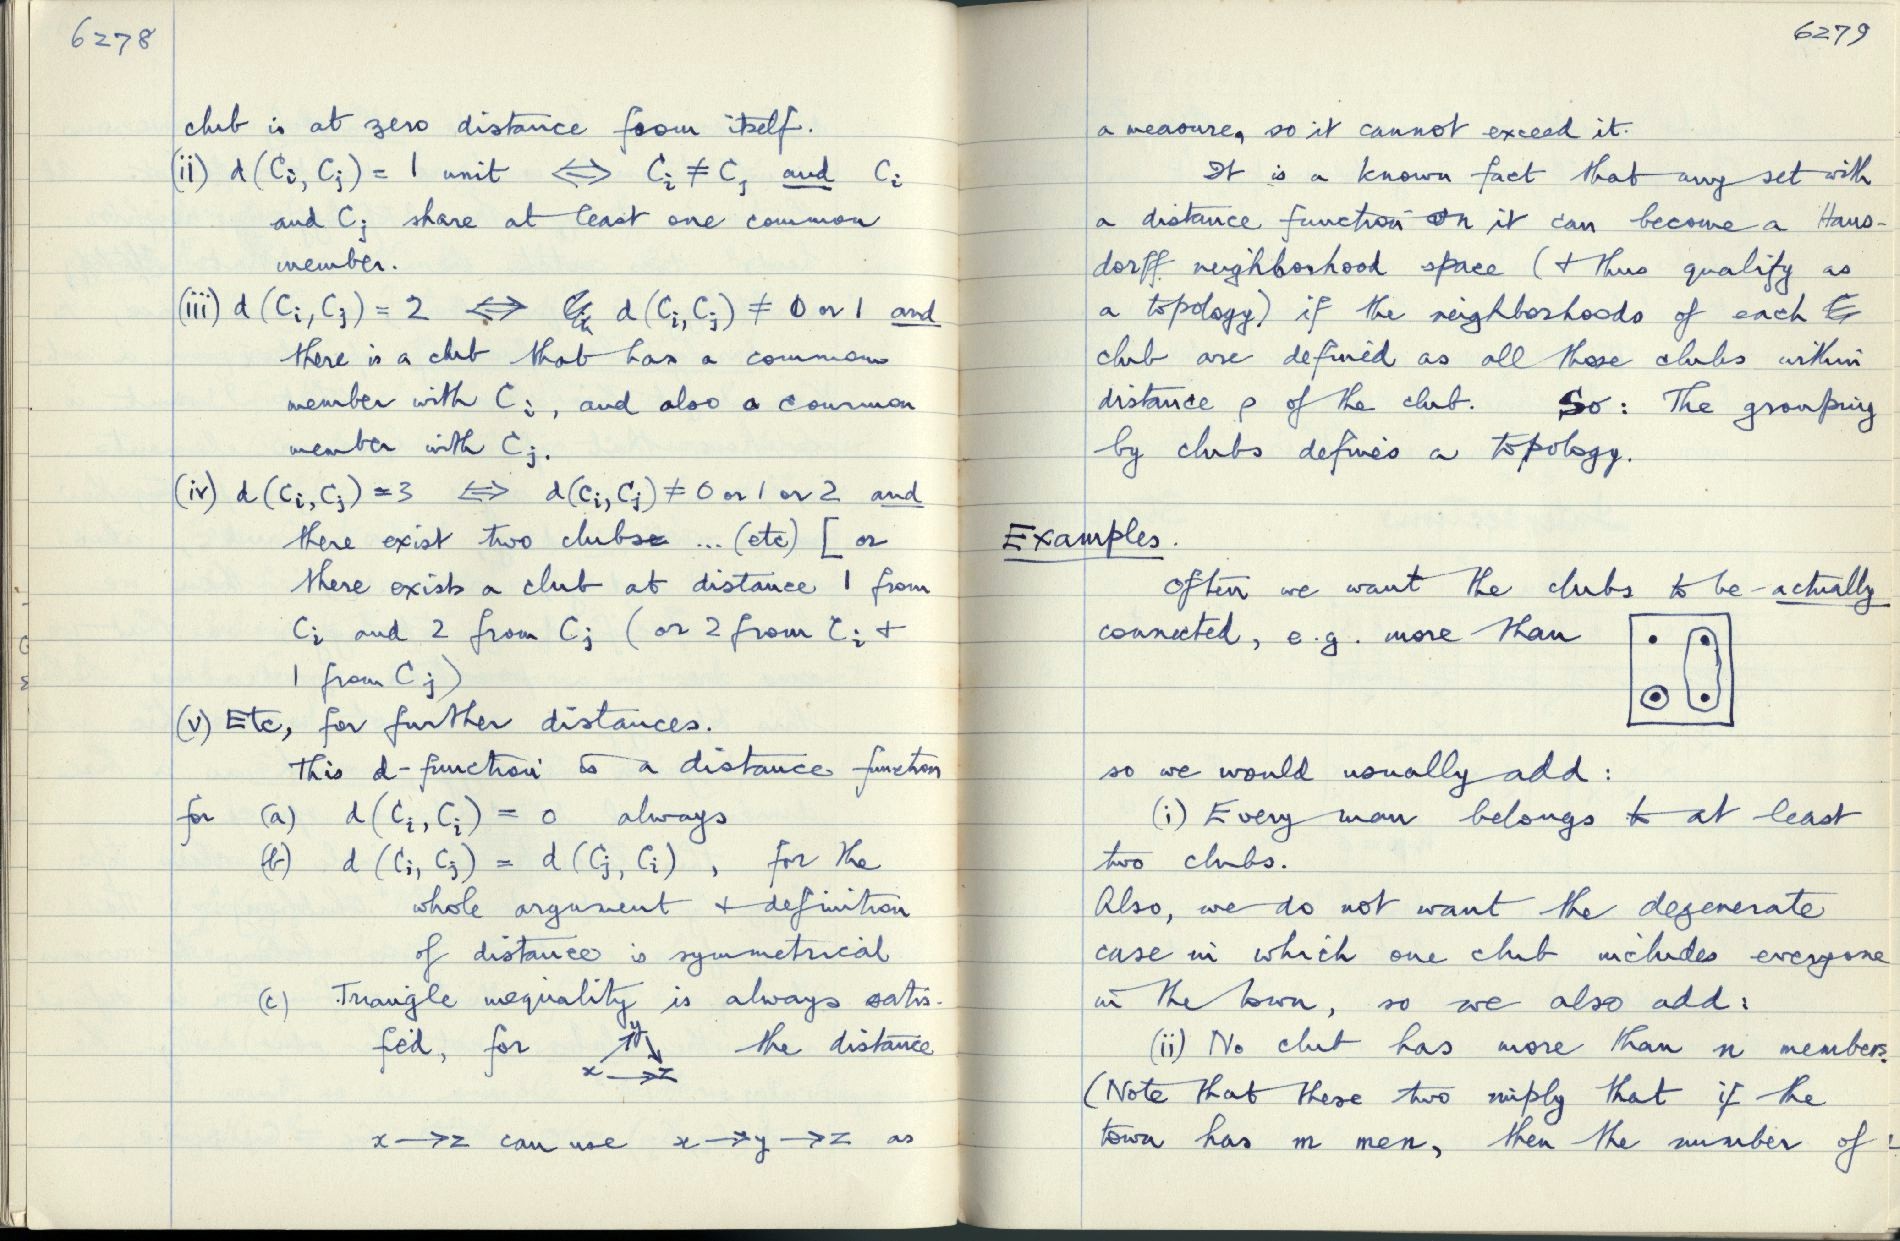 6278
club is at zero distance from itself.
(ii) d(Ci, Cj) = 1 unit ⟺ Ci ≠ Cj and Ci
and Cj share at least one common
member.
(iii) d(Ci, Cj) = 2 ⟺ d(Ci, Cj) ≠ 0 or 1 and
there is a club that has a common
member with Ci, and also a common
member with Cj.
(iv) d(Ci, Cj) = 3 ⟺ d(Ci, Cj) ≠ 0 or 1 or 2 and
there exist two clubs ... (etc) [ or
there exists a club at distance 1 from
Ci and 2 from Cj (or 2 from Ci +
1 from Cj)
(v) Etc, for further distances.
This d-function is a distance function
for (a) d(Ci, Ci) = 0 always
(b) d(Ci, Cj) = d(Cj, Ci), for the
whole argument + definition
of distance is symmetrical
(c) Triangle inequality is always satis-
fied, for x y z the distance
x → z can use x → y → z as
6279
a measure, so it cannot exceed it.
It is a known fact that any set with
a distance function on it can become a Haus-
dorff neighborhood space (+ thus qualify as
a topology) if the neighborhoods of each
club are defined as all those clubs within
distance ρ of the club. So: The grouping
by clubs defines a topology.
Examples.
Often we want the clubs to be actually
connected, e.g. more than
so we would usually add:
(i) Every man belongs to at least
two clubs.
Also, we do not want the degenerate
case in which one club includes everyone
in the town, so we also add:
(ii) No club has more than n members.
(Note that these two imply that if the
town has m men, then the number of